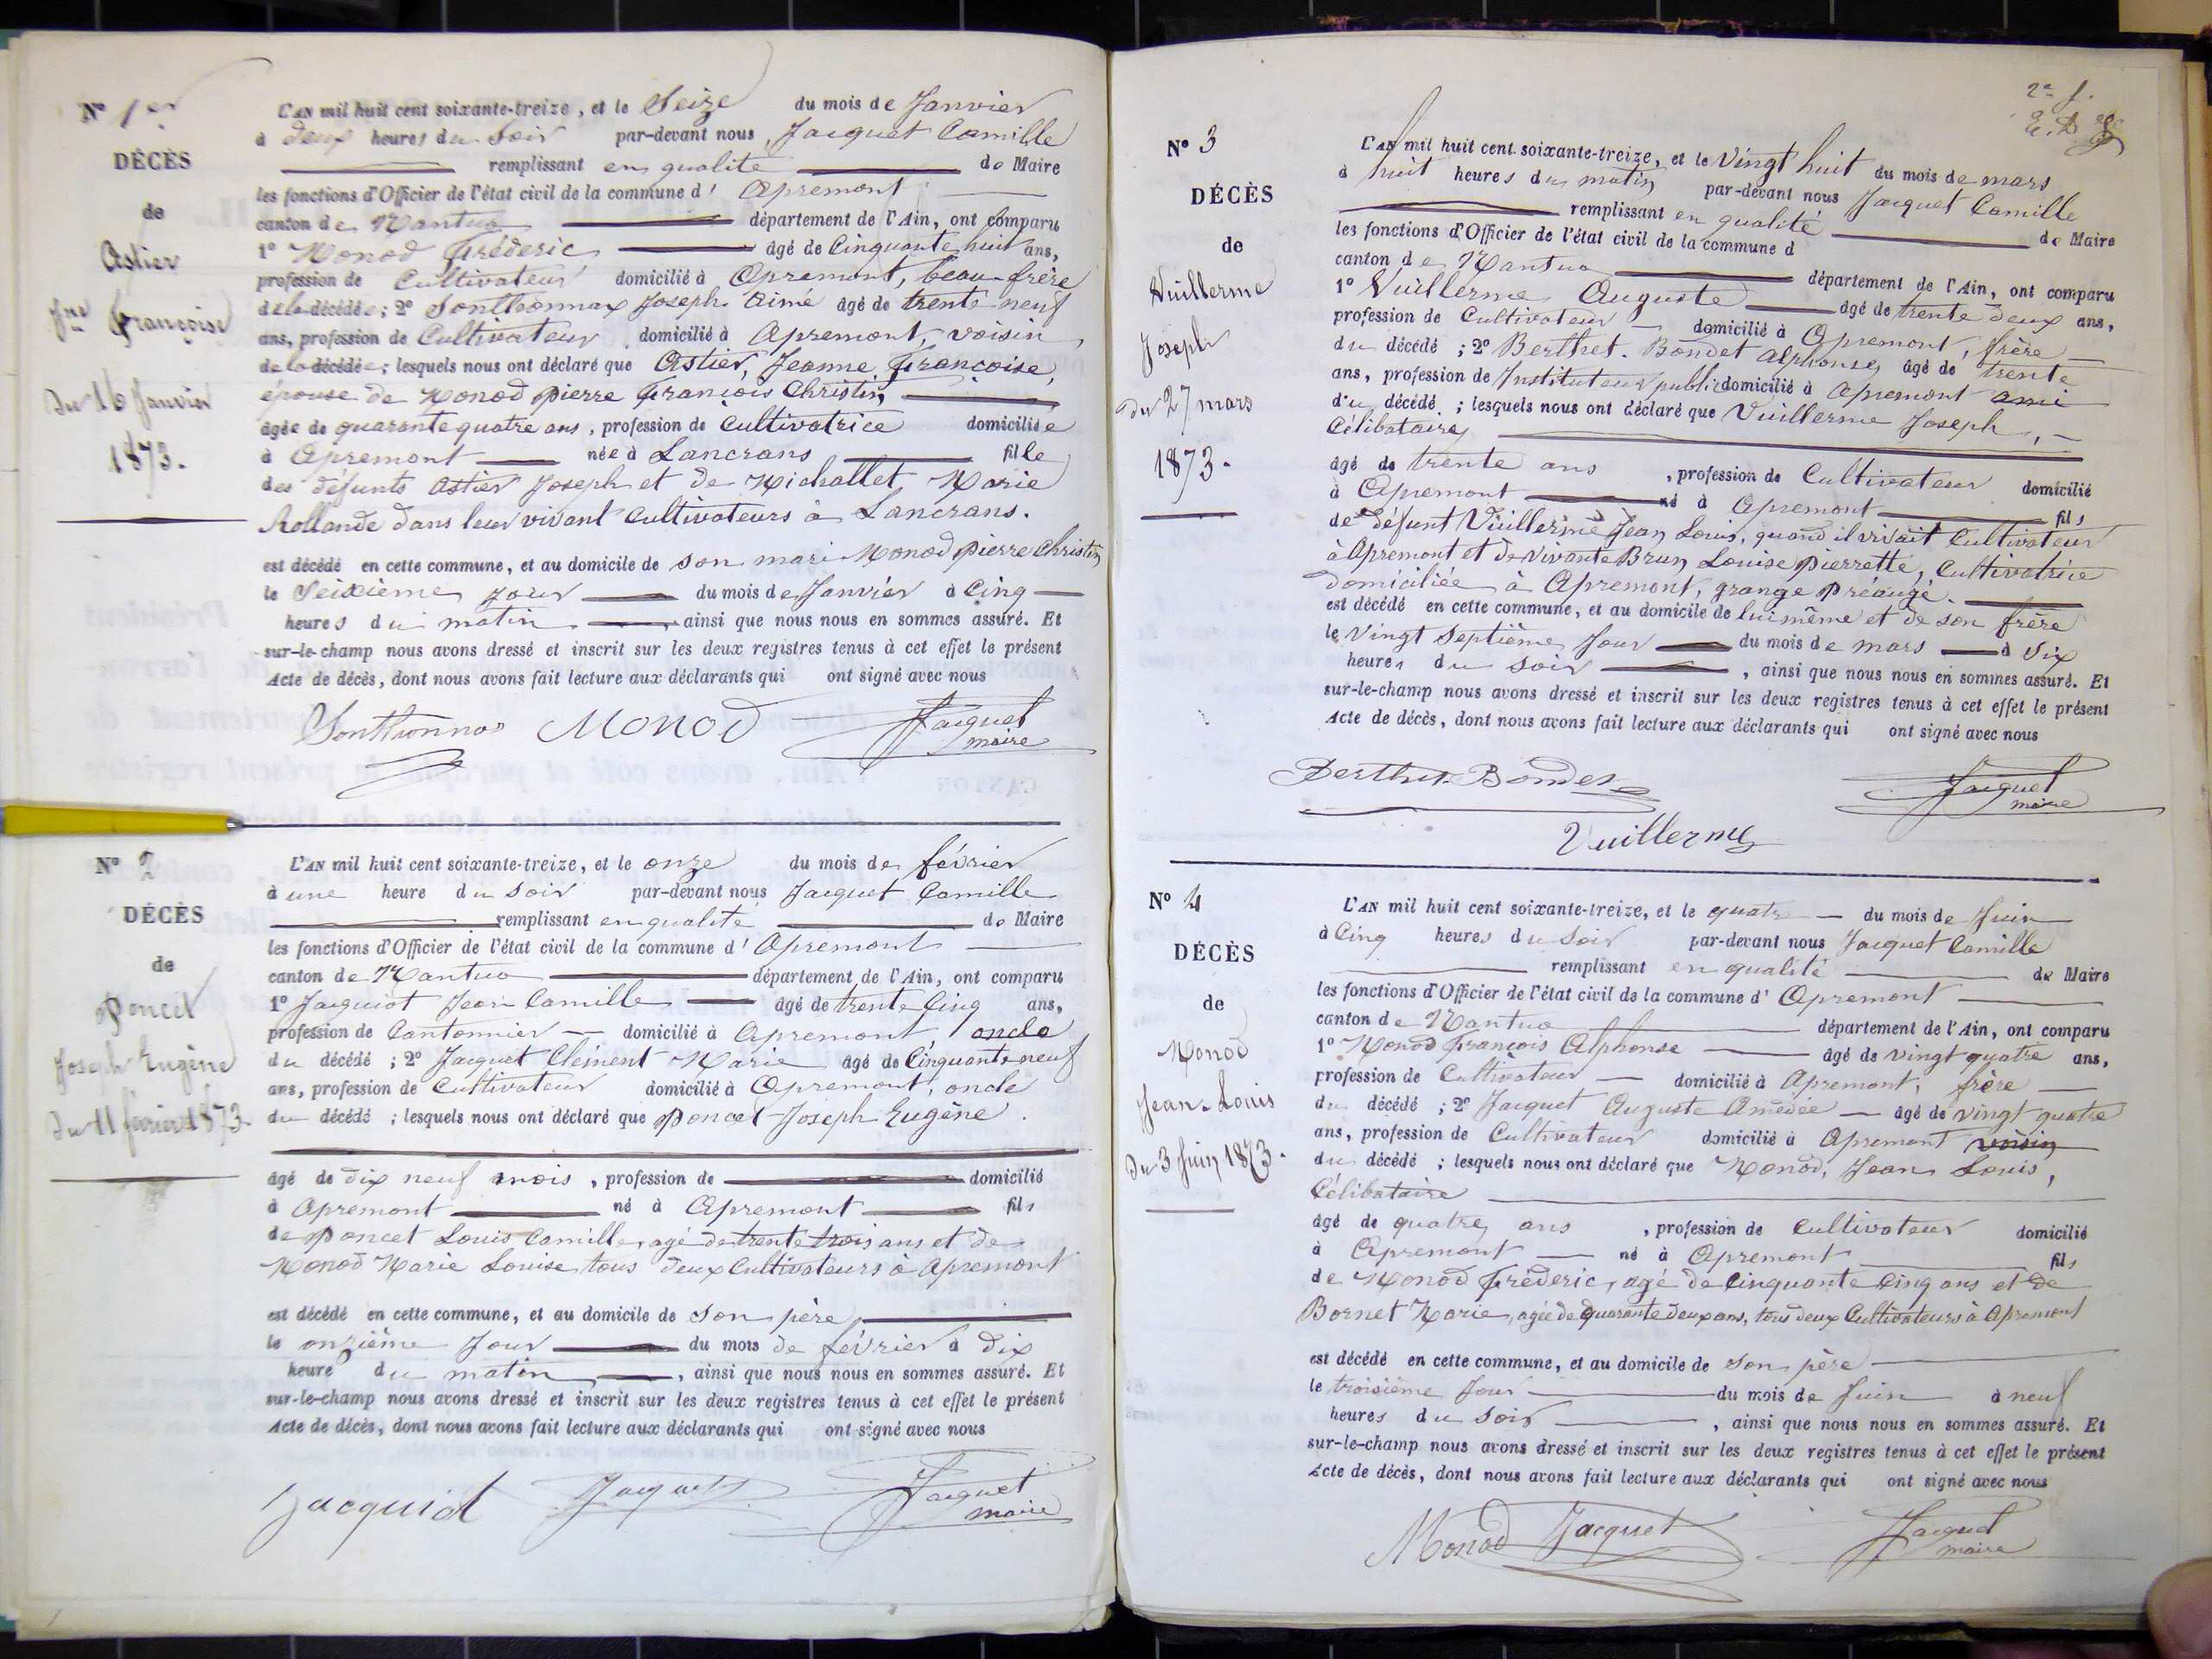 N° 1er
DÉCÈS
de
Astier
Jne Françoise
Du 16 Janvier
1873.
L'AN mil huit cent soixante-treize, et le Seize du mois de Janvier
à deux heures du Soir par-devant nous, Jacquet Camille
remplissant en qualité de Maire
les fonctions d'Officier de l'état civil de la commune d' Apremont
canton de Nantua département de l'Ain, ont comparu
1° Monod Fréderic âgé de Cinquante huit ans,
profession de Cultivateur domicilié à Apremont, beau-frère
de la décédée; 2° Sonthonnax Joseph Aimé âgé de trente neuf
ans, profession de Cultivateur domicilié à Apremont, voisin
de la décédée; lesquels nous ont déclaré que Astier, Jeanne Françoise,
épouse de Monod Pierre François Christin,
âgée de quarante quatre ans, profession de Cultivatrice domiciliée
à Apremont née à Lancrans fille
des défunts Astier Joseph et de Michallet Marie
Rollande dans leur vivant Cultivateurs à Lancrans.
est décédé en cette commune, et au domicile de son mari Monod Pierre Christin
le Seizième jour du mois de Janvier à Cinq
heures du matin ainsi que nous nous en sommes assuré. Et
sur-le-champ nous avons dressé et inscrit sur les deux registres tenus à cet effet le présent
Acte de décès, dont nous avons fait lecture aux déclarants qui ont signé avec nous
Sonthonnax Monod Jacquet
maire
N° 2
DÉCÈS
de
Poncet
Joseph Eugène
Du 11 février 1873.
L'AN mil huit cent soixante-treize, et le onze du mois de février
à une heure du Soir par-devant nous Jacquet Camille
remplissant en qualité de Maire
les fonctions d'Officier de l'état civil de la commune d' Apremont
canton de Nantua département de l'Ain, ont comparu
1° Jacquiot Jean Camille âgé de trente Cinq ans,
profession de Cantonnier domicilié à Apremont oncle
du décédé; 2° Jacquet Clément Marie âgé de Cinquante neuf
ans, profession de Cultivateur domicilié à Apremont, oncle
du décédé; lesquels nous ont déclaré que Poncet Joseph Eugène.
âgé de dix neuf mois, profession de domicilié
à Apremont né à Apremont fils
de Poncet Louis Camille, agé de trente trois ans et de
Monod Marie Louise tous deux Cultivateurs à Apremont
est décédé en cette commune, et au domicile de son père
le onzième jour du mois de février à dix
heure du matin, ainsi que nous nous en sommes assuré. Et
sur-le-champ nous avons dressé et inscrit sur les deux registres tenus à cet effet le présent
Acte de décès, dont nous avons fait lecture aux déclarants qui ont signé avec nous
Jacquiot Jacquet Jacquet
maire
2e f.
N° 3
DÉCÈS
de
Vuillerme
Joseph
du 27 mars
1873.
L'AN mil huit cent soixante-treize, et le Vingt huit du mois de mars
à huit heures du matin par-devant nous Jacquet Camille
remplissant en qualité de Maire
les fonctions d'Officier de l'état civil de la commune d
canton de Nantua département de l'Ain, ont comparu
1° Vuillerme Auguste âgé de trente deux ans,
profession de Cultivateur domicilié à Apremont, frère
du décédé; 2° Berthet-Bondet Alphonse, âgé de trente
ans, profession de Instituteur public domicilié à Apremont ami
du décédé; lesquels nous ont déclaré que Vuillerme Joseph,
Célibataire,
âgé de trente ans, profession de Cultivateur domicilié
à Apremont né à Apremont fils
de défunt Vuillerme Jean Louis, quand il vivait Cultivateur
à Apremont et de vivante Brun Louise Pierrette, Cultivatrice
domiciliée à Apremont, grange Préaugé.
est décédé en cette commune, et au domicile de lui même et de son frère
le Vingt Septième jour du mois de mars à Six
heures du soir, ainsi que nous nous en sommes assuré. Et
sur-le-champ nous avons dressé et inscrit sur les deux registres tenus à cet effet le présent
Acte de décès, dont nous avons fait lecture aux déclarants qui ont signé avec nous
Berthet-Bondet Jacquet
maire
Vuillerme
N° 4
DÉCÈS
de
Monod
Jean-Louis
Du 3 Juin 1873.
L'AN mil huit cent soixante-treize, et le quatre du mois de Juin
à Cinq heures du Soir par-devant nous Jacquet Camille
remplissant en qualité de Maire
les fonctions d'Officier de l'état civil de la commune d' Apremont
canton de Nantua département de l'Ain, ont comparu
1° Monod François Alphonse âgé de vingt quatre ans,
profession de Cultivateur domicilié à Apremont, frère
du décédé; 2° Jacquet Auguste Amédée âgé de vingt quatre
ans, profession de Cultivateur domicilié à Apremont voisin
du décédé; lesquels nous ont déclaré que Monod, Jean Louis,
Célibataire
âgé de quatre ans, profession de Cultivateur domicilié
à Apremont né à Apremont fils
de Monod Fréderic, agé de Cinquante Cinq ans et de
Bornet Marie, agée de quarante deux ans, tous deux Cultivateurs à Apremont
est décédé en cette commune, et au domicile de son père
le troisième jour du mois de Juin à neuf
heures du soir, ainsi que nous nous en sommes assuré. Et
sur-le-champ nous avons dressé et inscrit sur les deux registres tenus à cet effet le présent
Acte de décès, dont nous avons fait lecture aux déclarants qui ont signé avec nous
Monod Jacquet Jacquet
maire